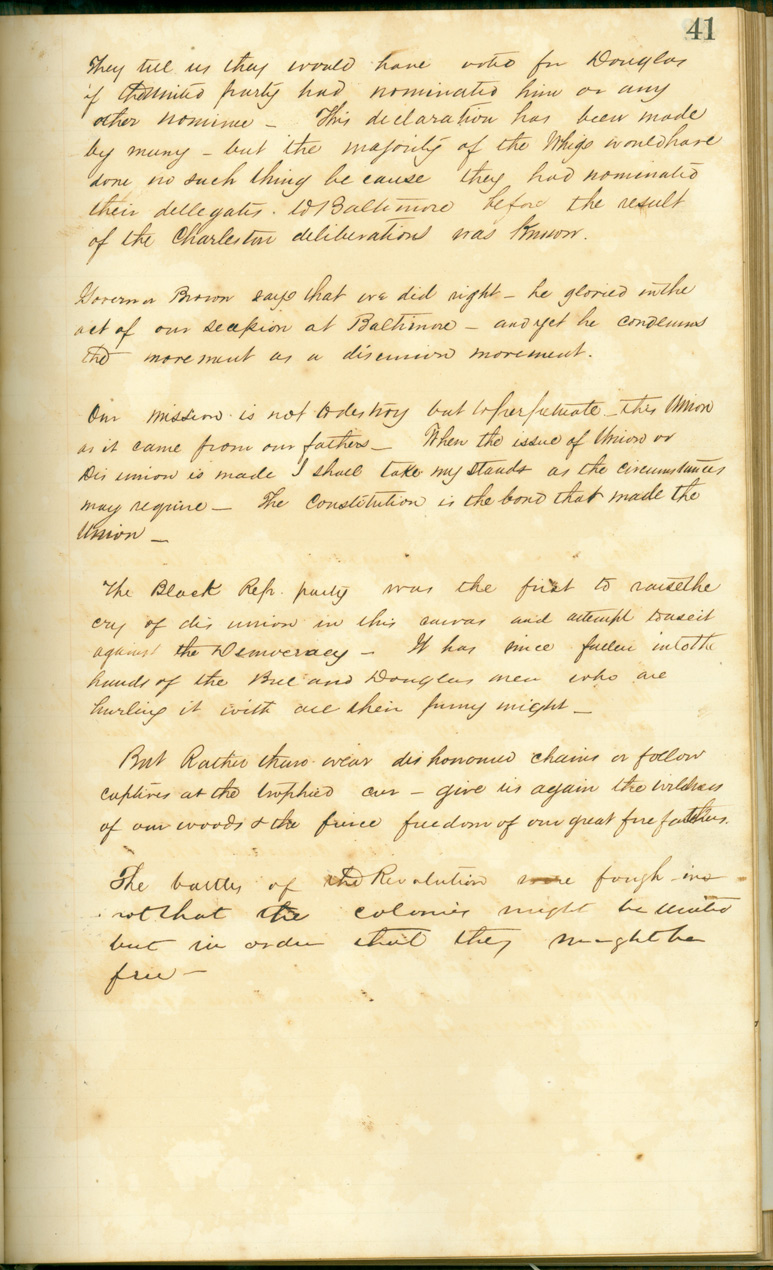 41
They tell us they would have voted for Douglas
if the united party had nominated him or any
other nominee – This declaration has been made
by many – but the majority of the Whigs would have
done no such thing because they had nominated
their dellegates to Baltimore before the result
of the Charleston deliberations was known.
Governor Brown says that we did right – he gloried in the
act of our secession at Baltimore – and yet he condemns
the movement as a disunion movement.
Our mission is not to destroy but to perpetuate this Union
as it came from our fathers – When the issue of Union or
Disunion is made I shall take my stand as the circumstances
may require – The Constitution is the bond that made the
Union –
The Black Rep. party was the first to raise the
cry of disunion in this canvas and attempt to use it
against the Democracy – It has since fallen into the
hands of the Bell and Douglas men who are
hurling it with all their puny might –
But Rather than wear dishonoured chains or follow
captives at the trophied car – give us again the wildness
of our woods & the fierce freedom of our great fore fathers.
The battles of the Revolution were fough
not that the colonies might be united
but in order that they might be
free –